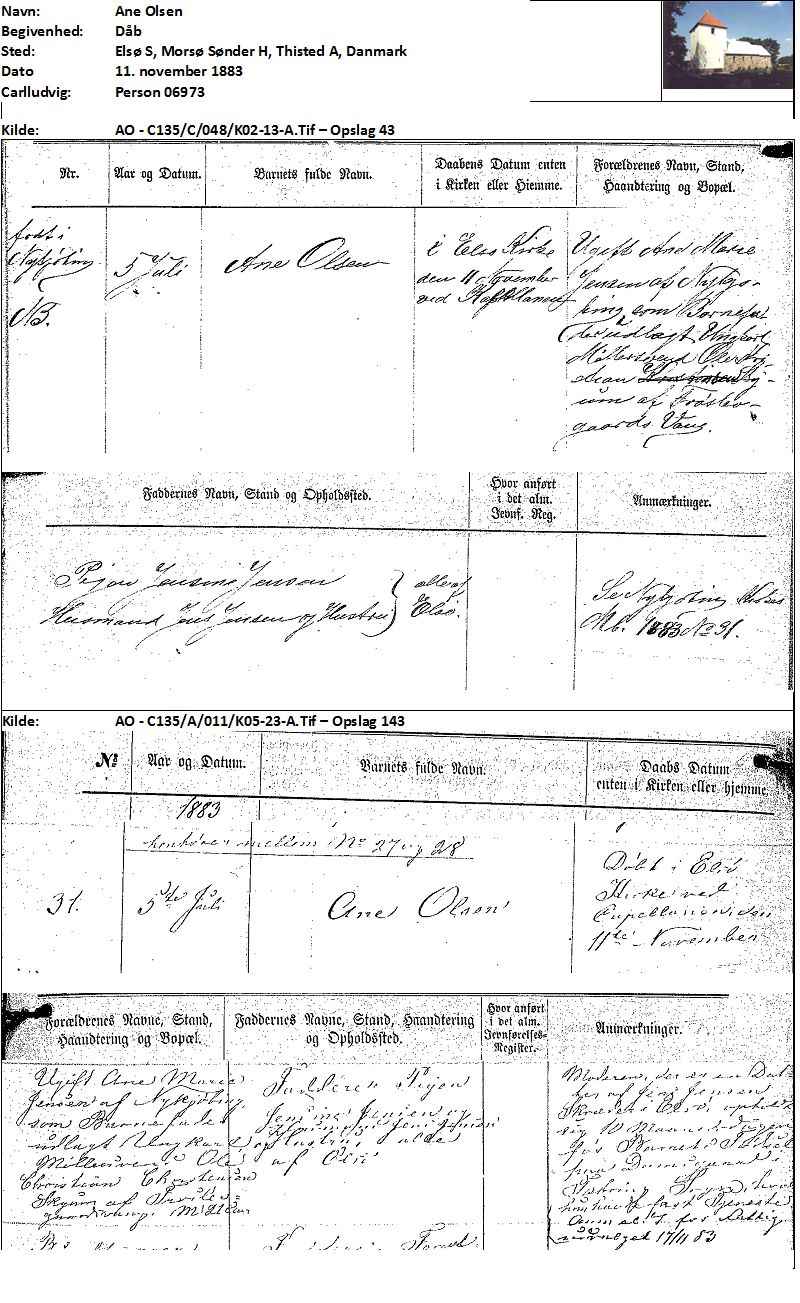 Navn: Ane Olsen
Begivenhed: Dåb
Sted: Elsø S, Morsø Sønder H, Thisted A, Danmark
Dato 11. november 1883
Carlludvig: Person 06973
Kilde: AO - C135/C/048/K02-13-A.Tif – Opslag 43
Nr.
Aar og Datum.
Barnets fulde Navn.
Daabens Datum enten
i Kirken eller Hjemme.
Forældrenes Navn, Stand,
Haandtering og Bopæl.
født i
Nykjøbing
NB.
5 Juli
Ane Olsen
i Elsø Kirke
den 11 November
ved
Ugift Ane Marie
Jensen af Nykjø-
bing, som Barnefa-
der udlagt Ungkarl
Møllersvend Ole Kri
stian Sky-
um af Frøslev-
gaards Vang.
Faddernes Navn, Stand og Opholdssted.
Hvor anført
i det alm.
Jevnf. Reg.
Anmærkninger.
Pigen Jensine Jensen
Husmand Jens Jensen og Hustru
alle af
Elsø.
Se Nykjøbing Kirkes
Mb. 1883 No 31.
Kilde: AO - C135/A/011/K05-23-A.Tif – Opslag 143
No
Aar og Datum.
Barnets fulde Navn.
Daabs Datum
enten i Kirken eller hjemme.
1883
henhører mellem No 27 og 28
31.
5te Juli
Ane Olsen
Døbt i Elsø
Kirke ved
Capellanen den
11te November
Forældrenes Navne, Stand,
Haandtering og Bopæl.
Faddernes Navne, Stand, Haandtering
og Opholdssted.
Hvor anført
i det alm.
Jevnførelses-
Register.
Anmærkninger.
Ugift Ane Marie
Jensen af Nykjøbing,
som Barnefader
udlagt Ungkarl
Møllersvend Ole
Christian Christensen
Skyum af Frøslev-
gaardsvang.
Fadderen Pigen
Jensine Jensen og
Husmand Jens Jensen
og Hustru, alle
af Elsø
Moderen, der er en Dat-
ter af Jens Jensen,
i Elsø, opholdt
sig 10 Maaneds-dagen
før Barnets Fødsel
paa
Sogn, hvor
hun havde fast Tjeneste
Anmeldt for
17/11 83